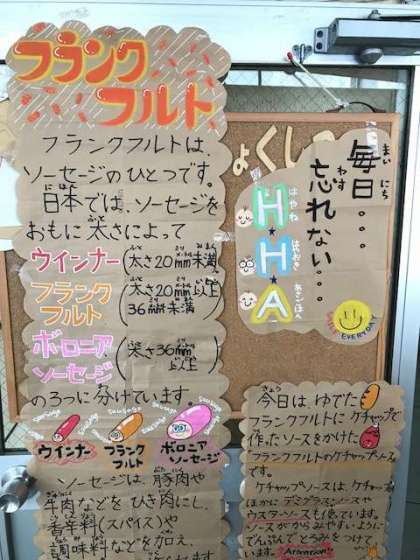 フランク
フルト
フランクフルトは、
ソーセージのひとつです。
日本では、ソーセージを
おもに太さによって
ウインナー(太さ20mm未満)
フランクフルト(太さ20mm以上36mm未満)
ボロニアソーセージ(太さ36mm以上)
の3つに分けています。
sausage
ウインナー
フランクフルト
ボロニアソーセージ
ソーセージは、豚肉や
牛肉などをひき肉にし、
香辛料(スパイス)や
調味料などを加え、
毎日・・・
忘れない・・・
H★H★A
はやね
はやおき
あさごはん
EVERYDAY
今日は、ゆでた
フランクフルトに、ケチャップで
作ったソースをかけた
フランクフルトのケチャップソースです。
ケチャップソースは、ケチャップの
ほかにデミグラスソースや
ウスターソースも使っています。
ソースがからみやすいように
でんぷんでとろみをつけて
います。